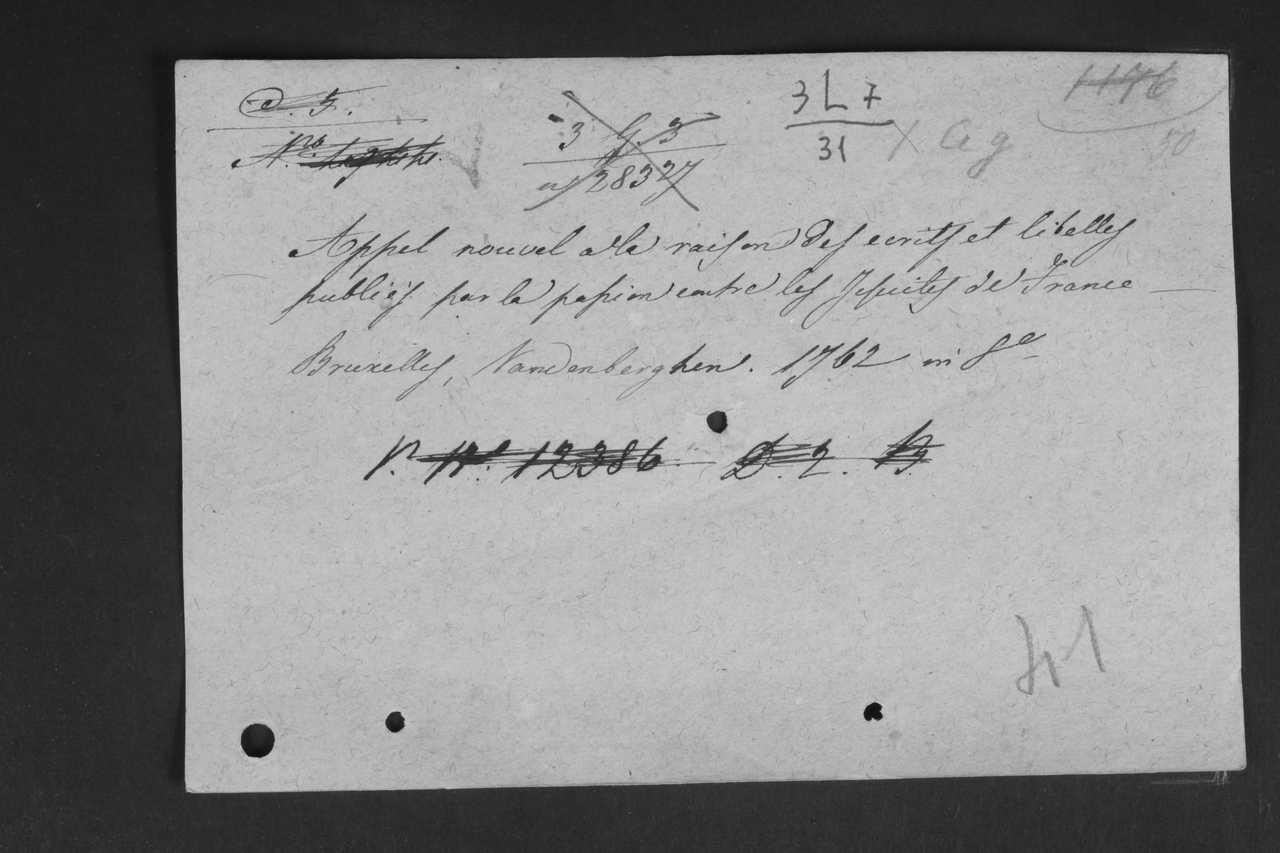 3 L 7 1176
3 G. 3
31 ag 50
N.ro 28327
Appel nouvel a la raison des ecrits et libelles
publiés par la passion contre les Jesuites de France —
Bruxelles, Vandenberghen. 1762 in 8º
V. Nº 12386 D. 2. B
41